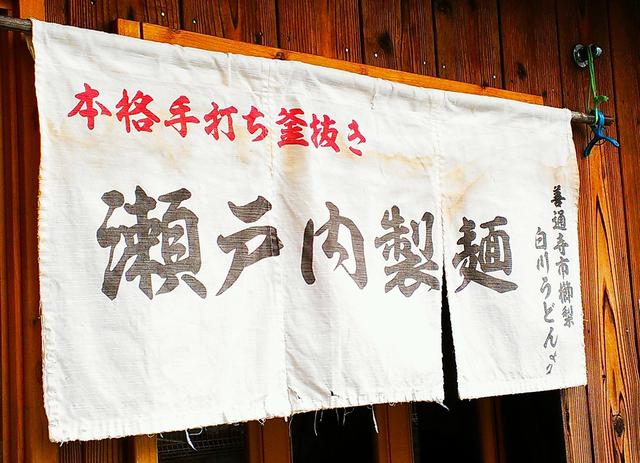 本格手打ち釜抜き
瀬戸内製麺
善通寺市櫛梨
白川うどんより